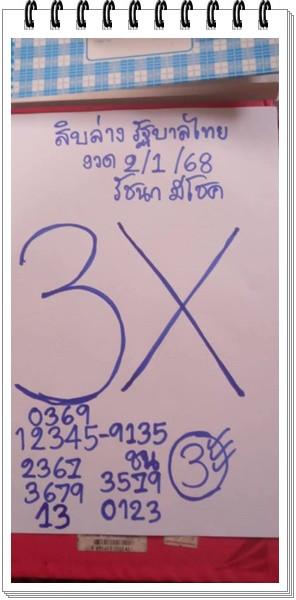 สิบล่าง รัฐบาลไทย
งวด 2/1/68
รัชนก มีโชค
3X
0369
12345-9135
2367 ชน
3679 3579
13 0123
3